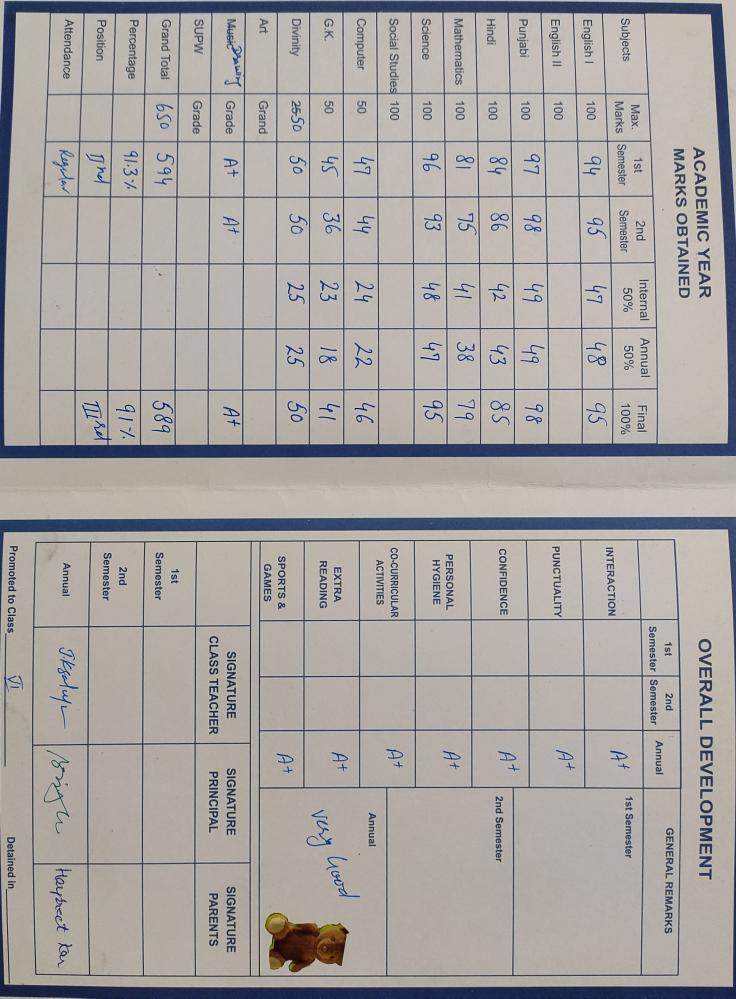 ACADEMIC YEAR
MARKS OBTAINED
Subjects Max. Marks 1st Semester 2nd Semester Internal 50% Annual 50% Final 100%
English I 100 94 95 47 48 95
English II 100
Punjabi 100 97 98 49 49 98
Hindi 100 84 86 42 43 85
Mathematics 100 81 75 41 38 79
Science 100 96 93 48 47 95
Social Studies 100
Computer 50 47 44 24 22 46
G.K. 50 45 36 23 18 41
Divinity 50 50 50 25 25 50
Art Grand
Music Drawing Grade A+ A+ A+
SUPW Grade
Grand Total 650 594 589
Percentage 91.3% 91%
Position IInd IIIrd
Attendance Regular
OVERALL DEVELOPMENT
1st Semester 2nd Semester Annual GENERAL REMARKS
INTERACTION A+ 1st Semester
PUNCTUALITY A+
CONFIDENCE A+ 2nd Semester
PERSONAL HYGIENE A+
CO-CURRICULAR ACTIVITIES A+ Annual
EXTRA READING A+ Very Good
SPORTS & GAMES A+
SIGNATURE CLASS TEACHER SIGNATURE PRINCIPAL SIGNATURE PARENTS
1st Semester
2nd Semester
Annual Harpreet Kar
Promoted to Class VI Detained in